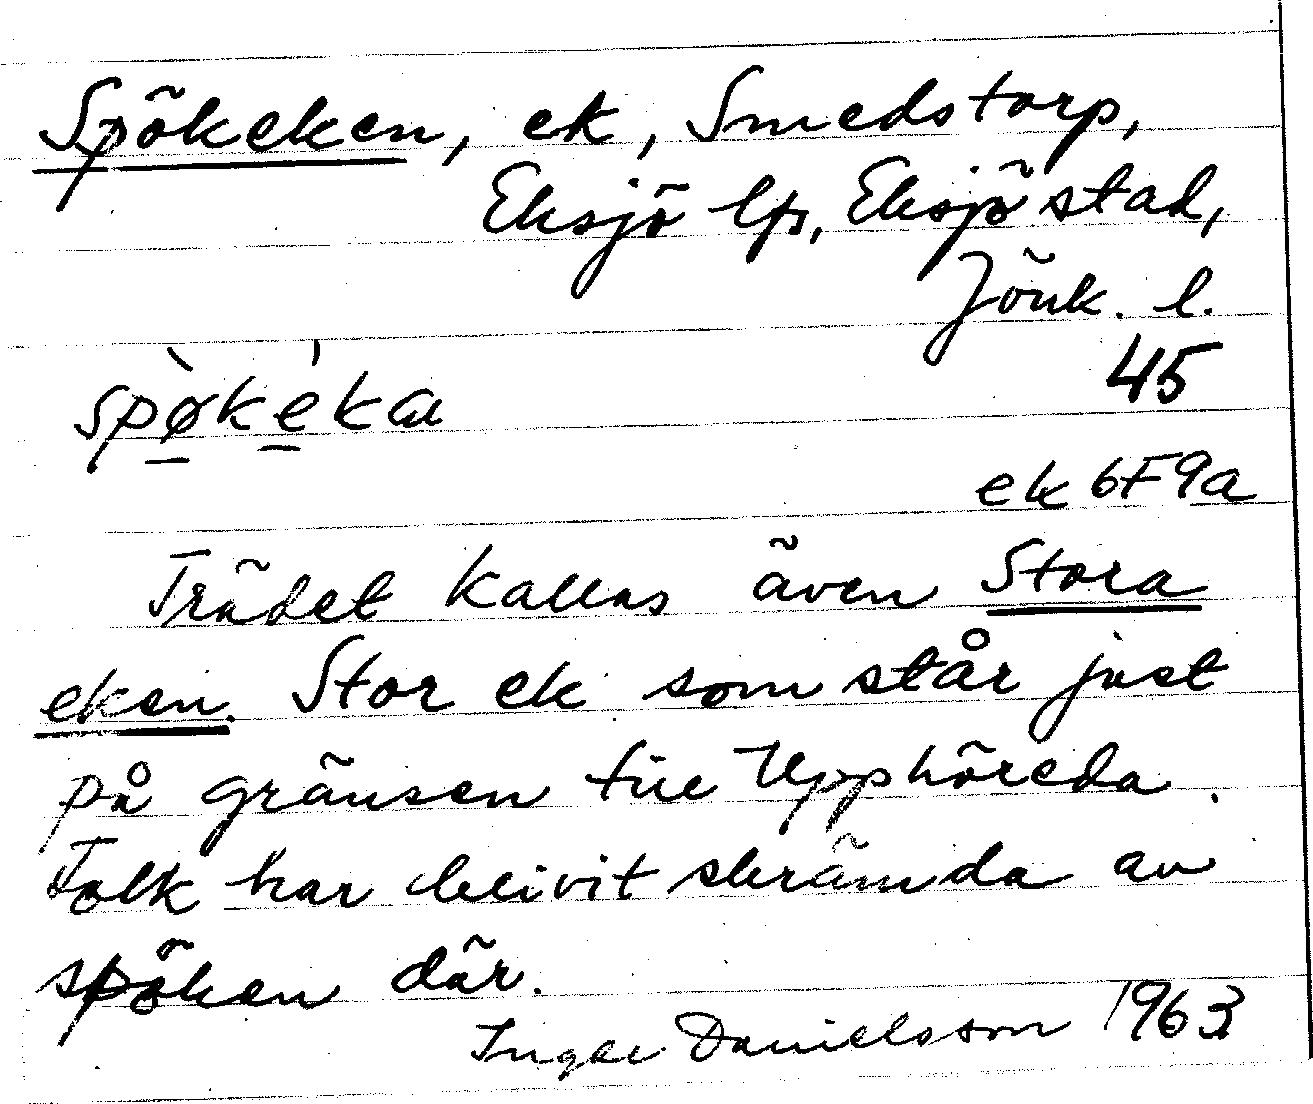 Spökeken, ek, Smedstorp,
Eksjö lfs, Eksjö stad,
Jönk. l.
45
spø̀kékа
ek 6F9a
Trädet kallas även Stora
eken. Stor ek som står just
på gränsen till Upphöreda.
Folk har blivit skrämda av
spöken där.
Inger Danielsson 1963